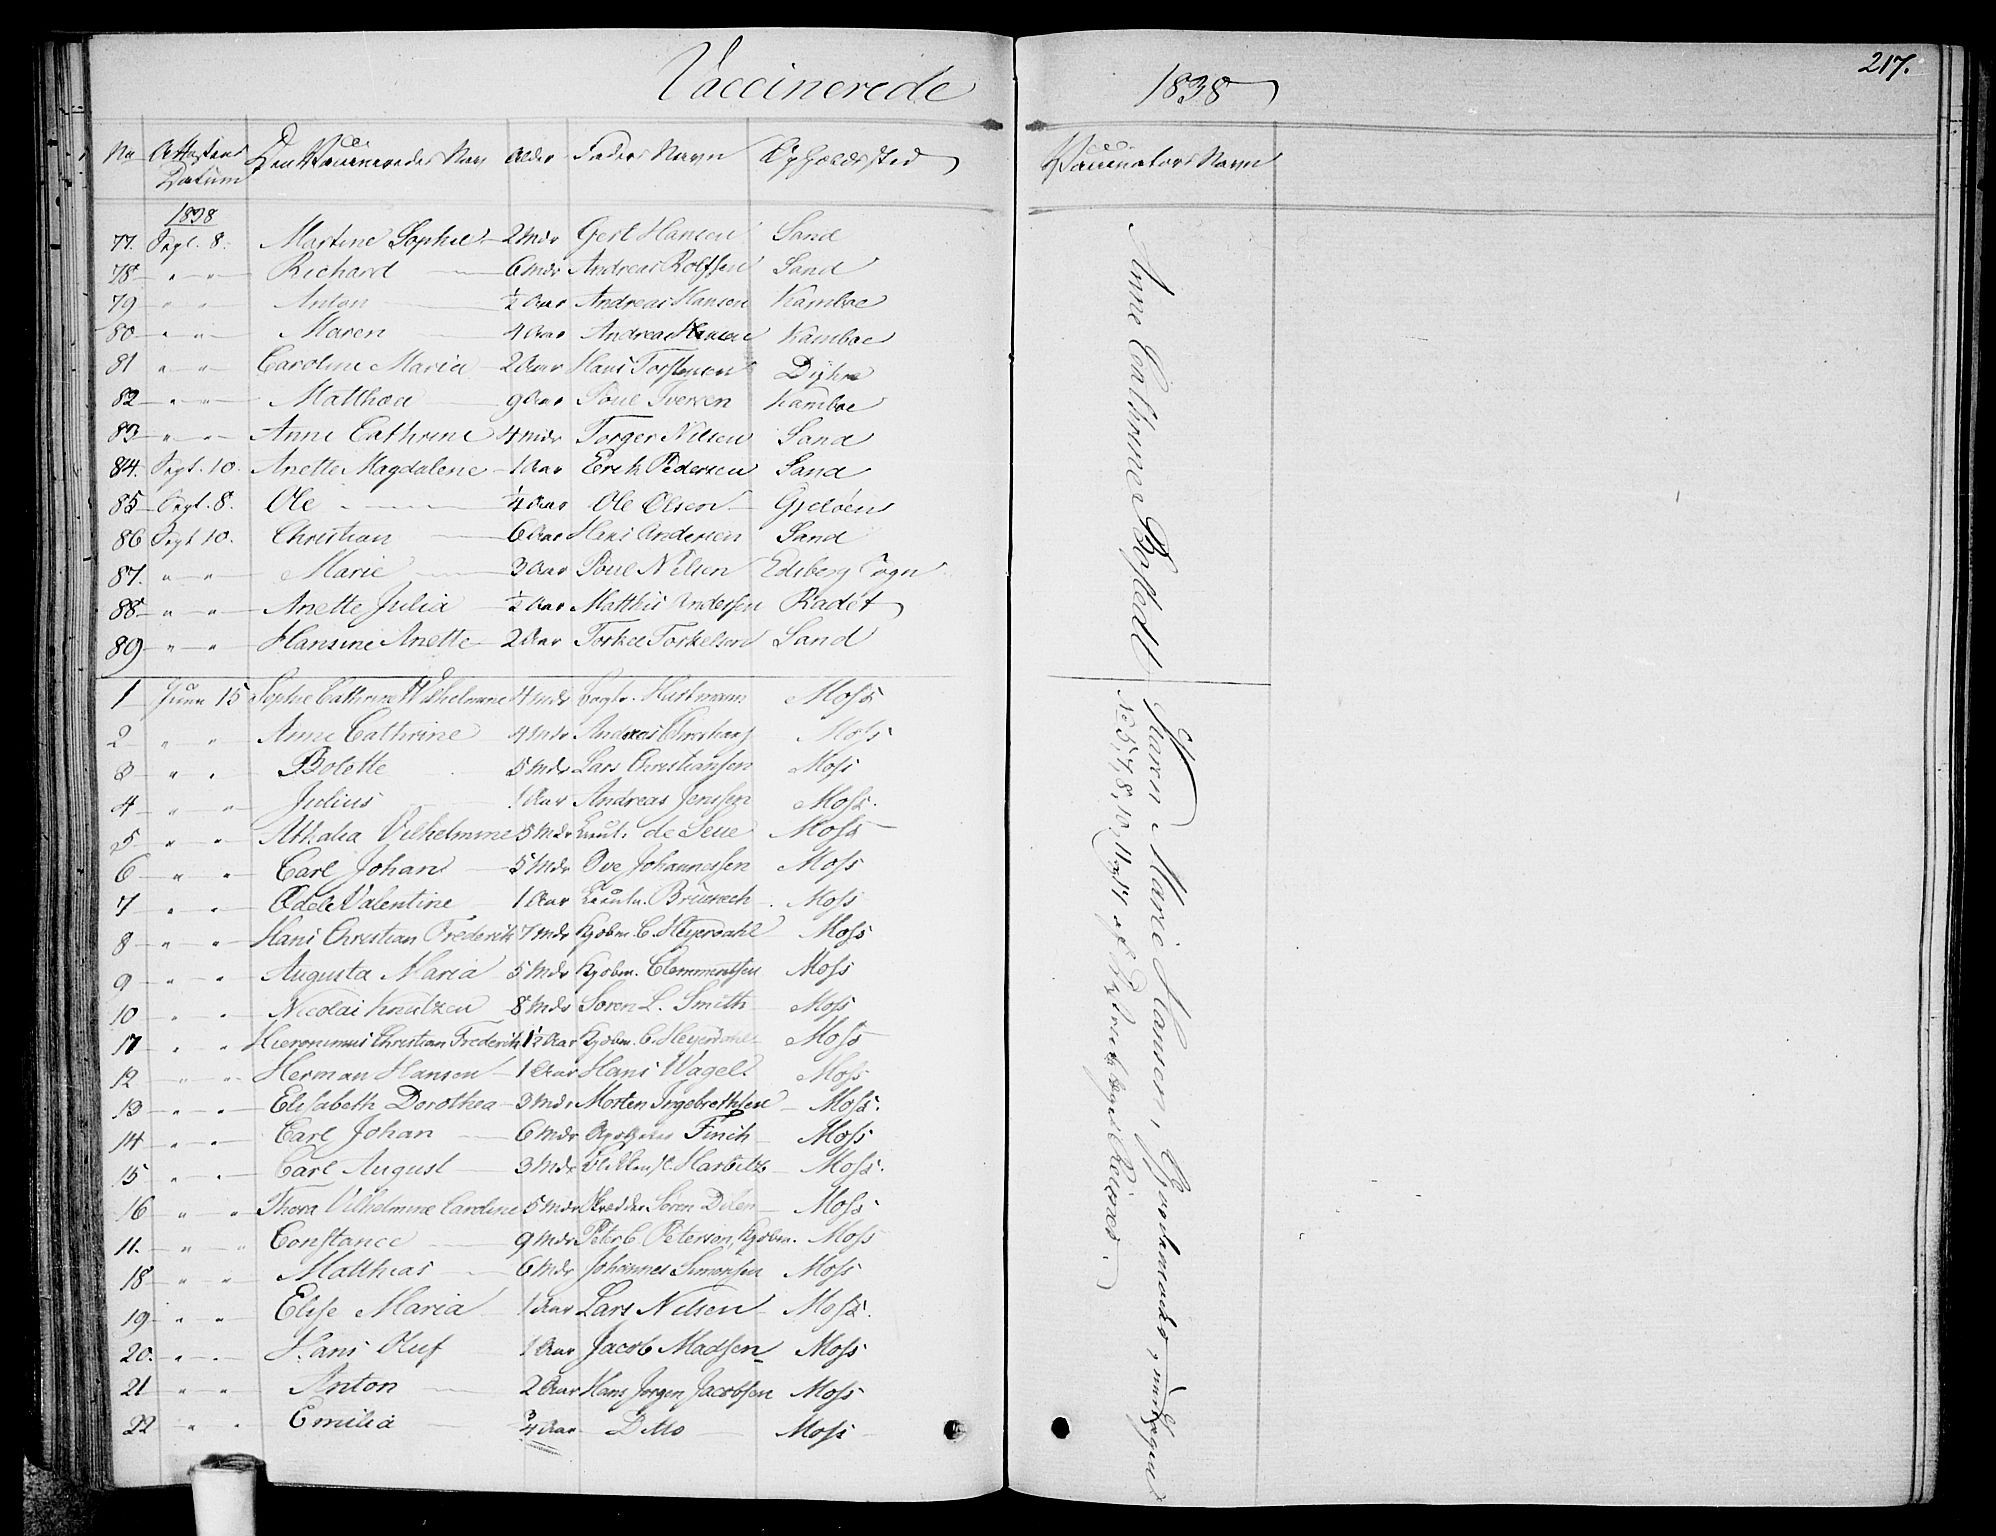 Vaccinerede
1838
217.
No Attestens Datum Den Vaccineredes Navn Alder Faders Navn Opholdssted Vaccinators Navn
1838
77. Sept. 8. Martine Sophie 2 Mdr Gerl Hansen Sand
78 " " Richard 6 Mdr Andreas Rolfsen Sand
79 " " Anton ½ Aar Andreas Hansen Kamboe
80 " " Maren 4 Aar Andreas Hansen Kamboe
81 " " Caroline Maria 2 Aar Hans Torstensen Dyhre
82 " " Mathea 9 Aar Poul Iversen Kamboe
83 " " Anne Cathrine 4 Mdr Torger Nilsen Sand
84. Sept. 10. Anette Magdalene 1 Aar Erik Pedersen Sand
85 Sept. 8. Ole ¼ Aar Ole Olsen Gjelöen
86 Sept 10. Christian 6 Aar Hans Andersen Sand
87. " " Marie 3 Aar Poul Nilsen Edsberg Sogn
88 " " Anette Julia ½ Aar Matthis Andersen Radet
89 " " Hansine Anette 2 Aar Torkel Torkelsen Sand
1 Juni 15 Sophie Cathrine Wilhelmine 4 Mdr Hartmann Moss
2 " " Anne Cathrine 4 Mdr Andreas Moss
3 " " Bolette 5 Mdr Lars Christiansen Moss
4 " " Julius 1 Aar Andreas Jenssen Moss.
5 " " Athalia Vilhelmine 5 Mdr Lieut. de Seue Moss
6 " " Carl Johan 5 Mdr Ove Johannessen Moss
7 " " Adele Valentine 1 Aar Moss
8 " " Hans Christian Frederik 7 Mdr Kjøbm. C. Heyerdahl Moss
9 " " Augusta Maria 5 Mdr Kjøbm. Clemmentsen Moss
10 " " Nicolai Knutzen 8 Mdr Søren L. Smith Moss
17 " " Hieronimus Christian Frederik 1½ Aar Kjøbm. C. Heyerdahl Moss
12 " " Herman Hansen 1 Aar Hans Wagel. Moss
13 " " Elisabeth Dorothea 3 Mdr Morten Ingebrethsen Moss.
14 " " Carl Johan 6 Mdr Apotheker Finch Moss
15 " " Carl August 3 Mdr Harbitz Moss.
16 " " Thora Vilhelmine Caroline 5 Mdr Skrædder Søren Dilen Moss
11. " " Constance 9 Mdr Peter C Petersen, Kjøbm. Moss
18 " " Matthias 6 Mdr Johannes Simonsen Moss
19 " " Elise Maria 1 Aar Lars Nilsen Moss.
20. " " Hans Oluf 1 Aar Jacob Madsen Moss
21 " " Anton 2 Aar Hans Jørgen Jacobsen Moss
22 " " Emilia ¾ Aar Ditto Moss
Anne Cathrine
Karen Marie Hansen,